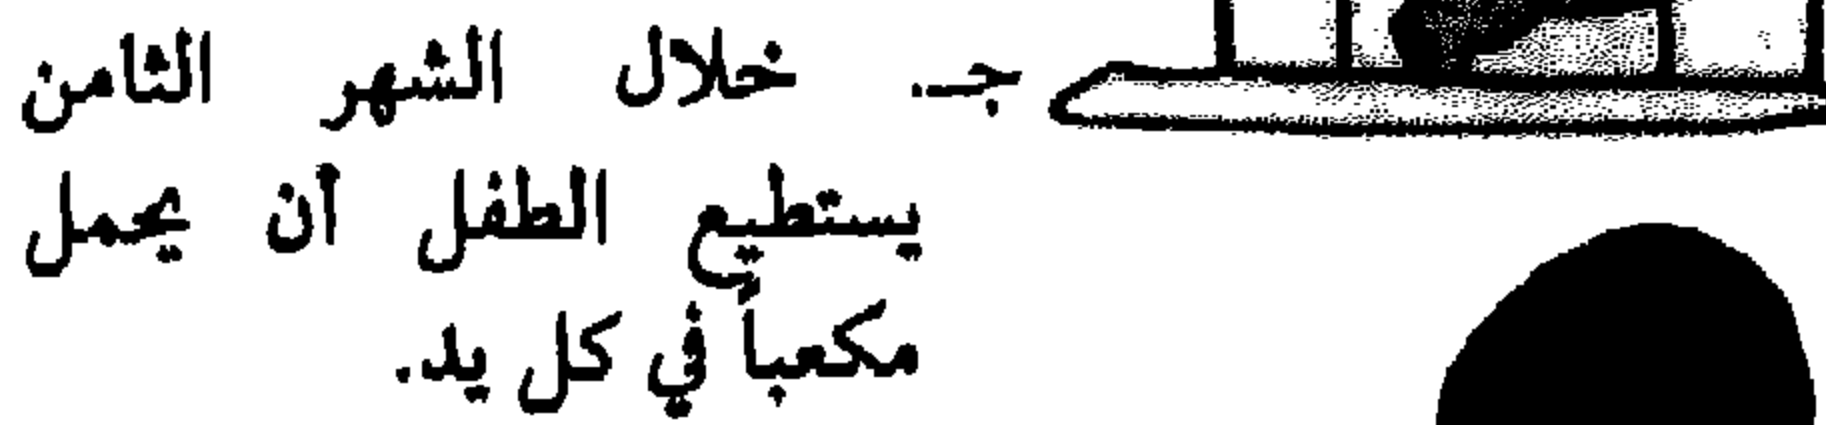 جـ. خلال الشهر الثامن
يستطيع الطفل أن يحمل
مكعباً في كل يد.